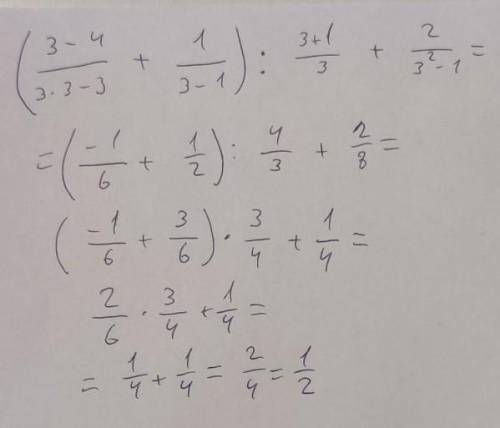 ((3-4)/(3·3-3) + 1/(3-1)) : (3+1)/3 + 2/(3²-1) =
= (-1/6 + 1/2) : 4/3 + 2/8 =
(-1/6 + 3/6) · 3/4 + 1/4 =
2/6 · 3/4 + 1/4 =
= 1/4 + 1/4 = 2/4 = 1/2